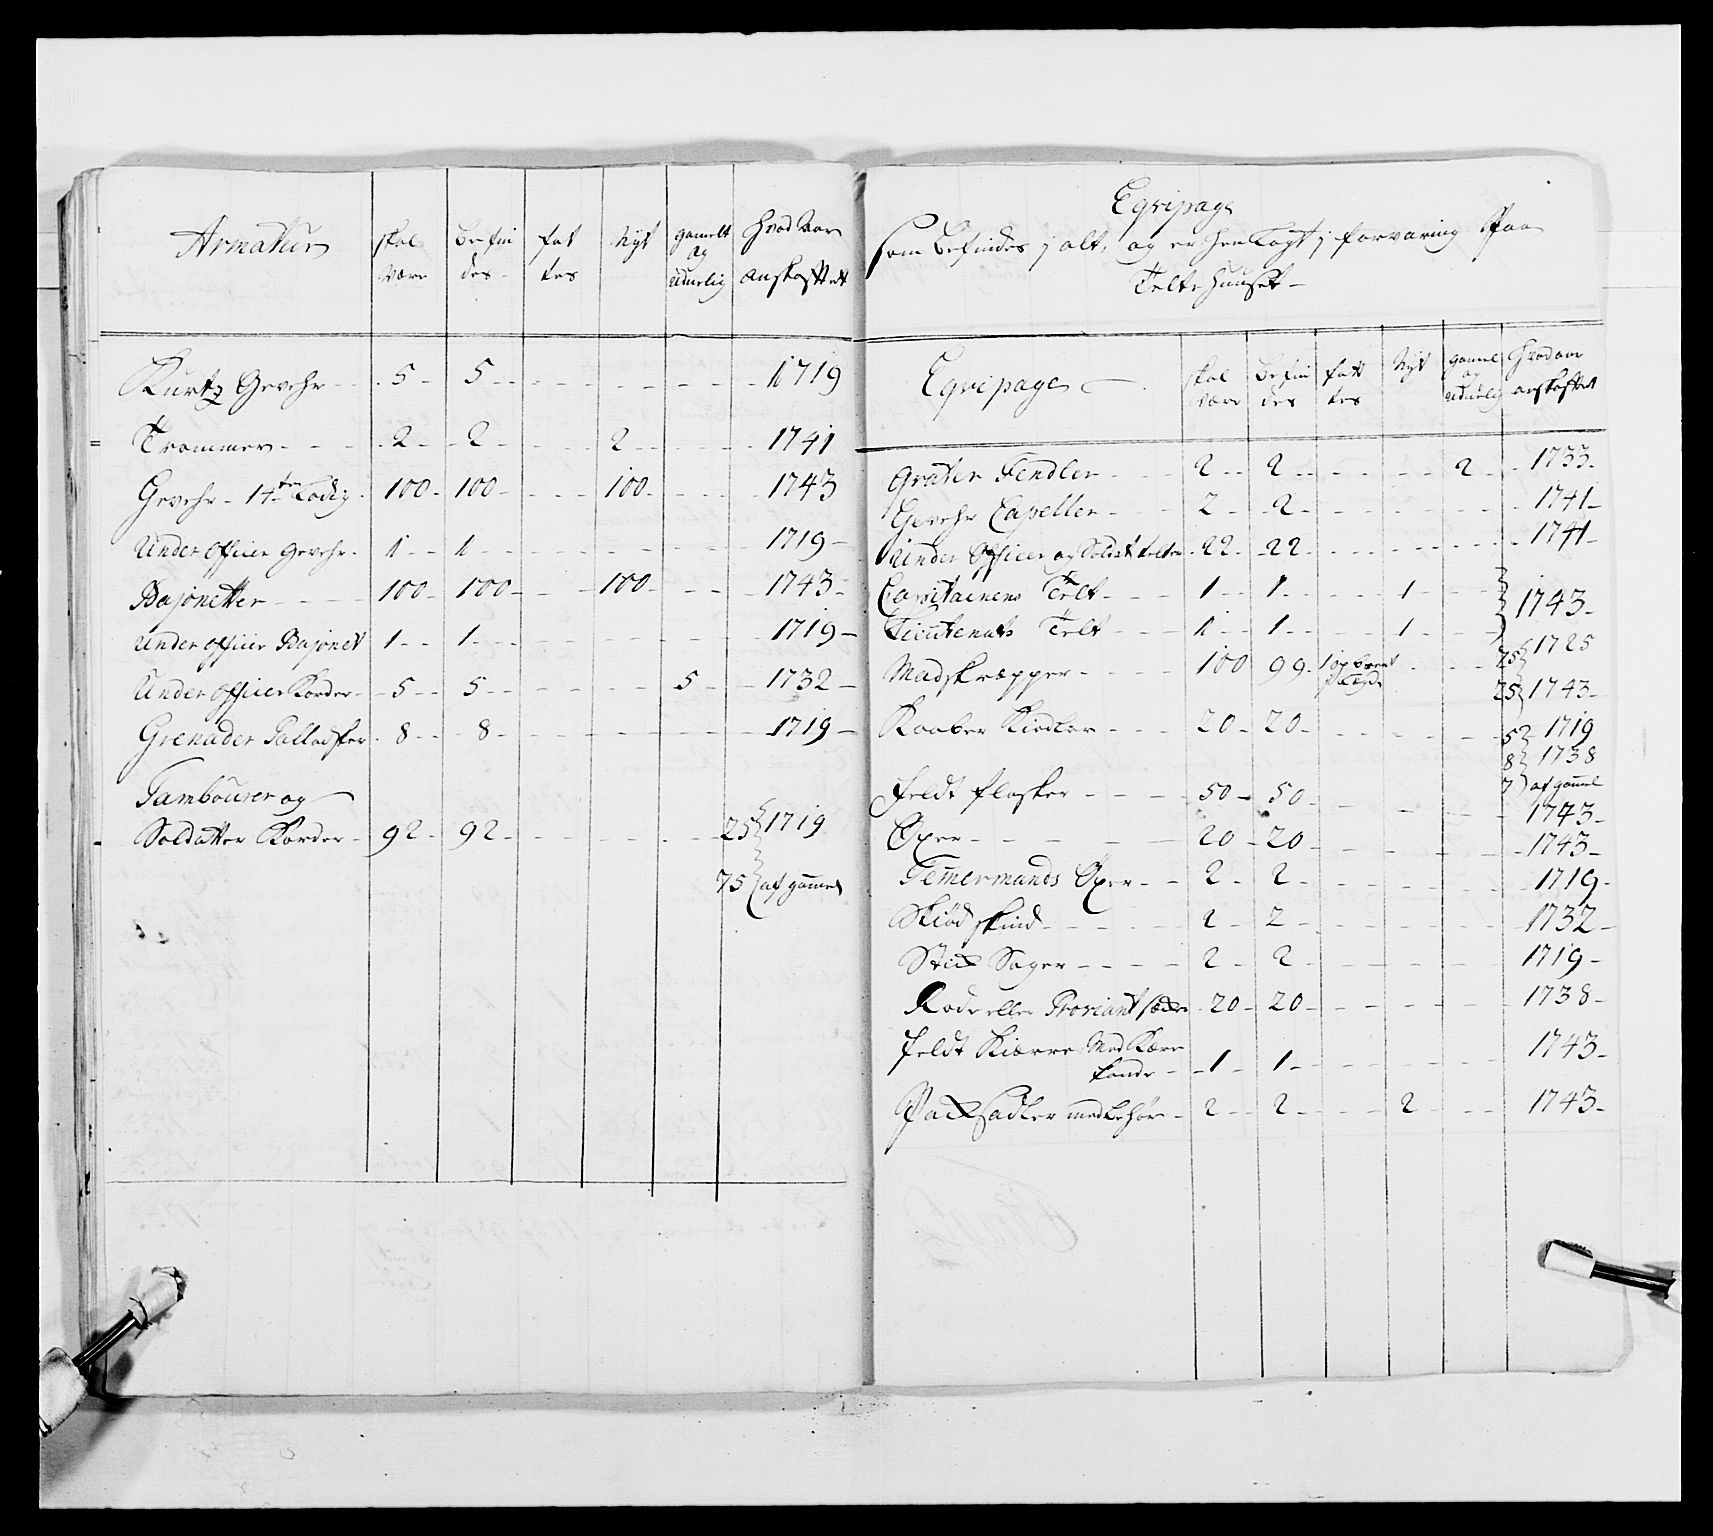 Armatur | skal være | befindes | fattes | Nyt | gamelt og udüelig | hvad Aar anskaffet
Kurtz Gevehr | 5 | 5 | | | | 1719
Trommer | 2 | 2 | | 2 | | 1741
Gevehr 14ten Lodig | 100 | 100 | | 100 | | 1743
Under officier gevehr | 1 | 1 | | | | 1719
Bajonetter | 100 | 100 | | 100 | | 1743
Under officier Bajonet | 1 | 1 | | | | 1719
Under officier Korder | 5 | 5 | | | 5 | 1732
Grenader Pallasker | 8 | 8 | | | | 1719
Tambourer og
Soldatter Korder | 92 | 92 | | | | 25 1719
75 af gammel
Eqvipage
som befindes j alt, og er henlagt j forvaring Paa
Telte huuset
Eqvipage | skal være | befindes | fattes | Nyt | gamel og udüelig | hvad aar anskaffet
Gevehr Capeller | 2 | 2 | | | | 1741
Under Officer og Soldat telter | 22 | 22 | | | | 1741
Capitainens Telt | 1 | 1 | | 1 | | 1743
Lieutenants Telt | 1 | 1 | | 1
Madskrepper | 100 | 99 | | | | 75 1725
25 1743
Kaaber Kiedler | 20 | 20 | | | | 5 1719
8 1738
7 af gammel
feldt flasker | 50 | 50 | | | | 1743
Øxer | 20 | 20 | | | | 1743
Temermands Øxer | 2 | 2 | | | | 1719
Skiød skind | 2 | 2 | | | | 1732
Stick Sager | 2 | 2 | | | | 1719
Rode eller Proviant | 20 | 20 | | | | 1738
feldt Kiærre Med
1 | 1 | | | | 1743
Packsadler med behør | 2 | 2 | | 2 | | 1743